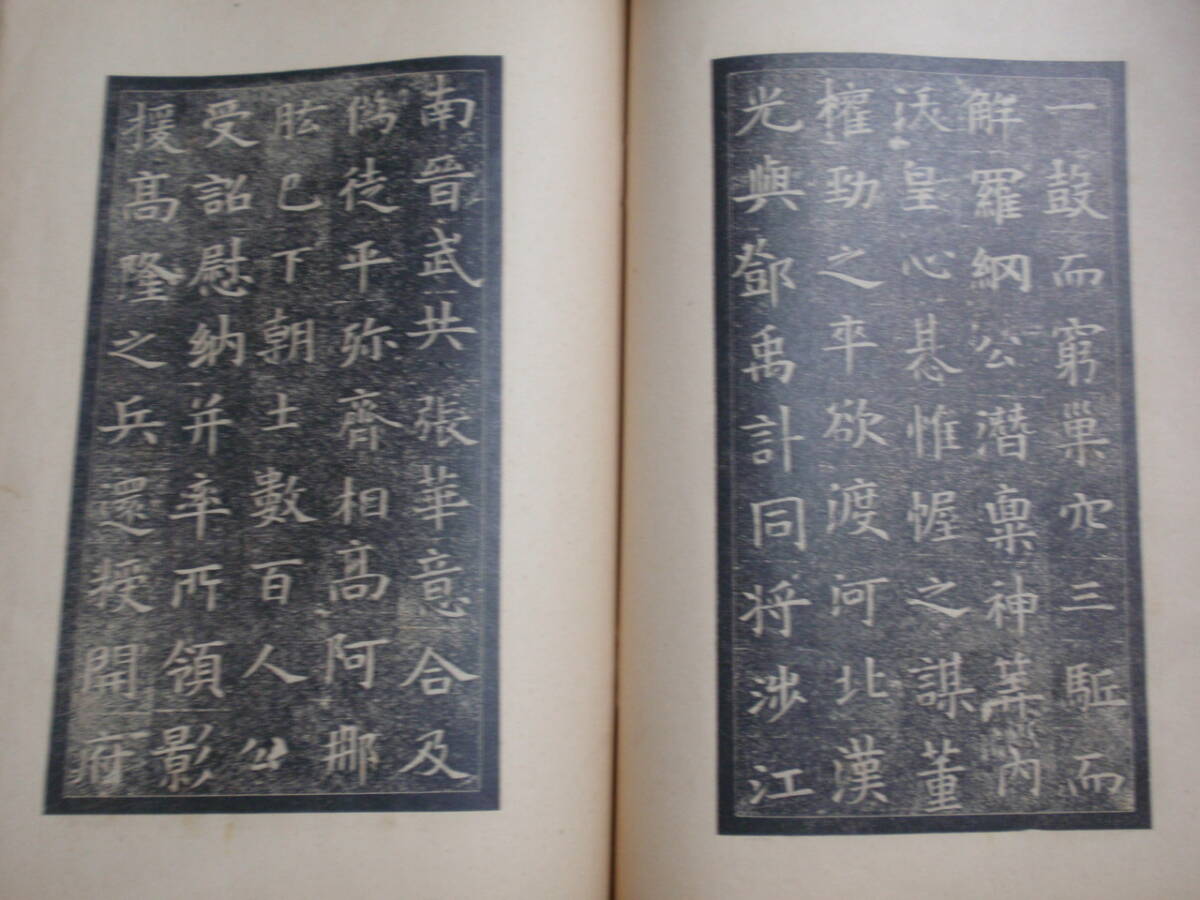 一鼓而窮巢穴三駈而
解羅網公潛稟神筭內
沃皇心惎惟幄之謀董
㩁勁之卒欲渡河北漢
光與鄧禹計同將涉江
南晉武共張華意合及
僞徒平殄齊相高阿那
肱已下朝士數百人公
受詔慰納并率所領影
援高隆之兵還授開府